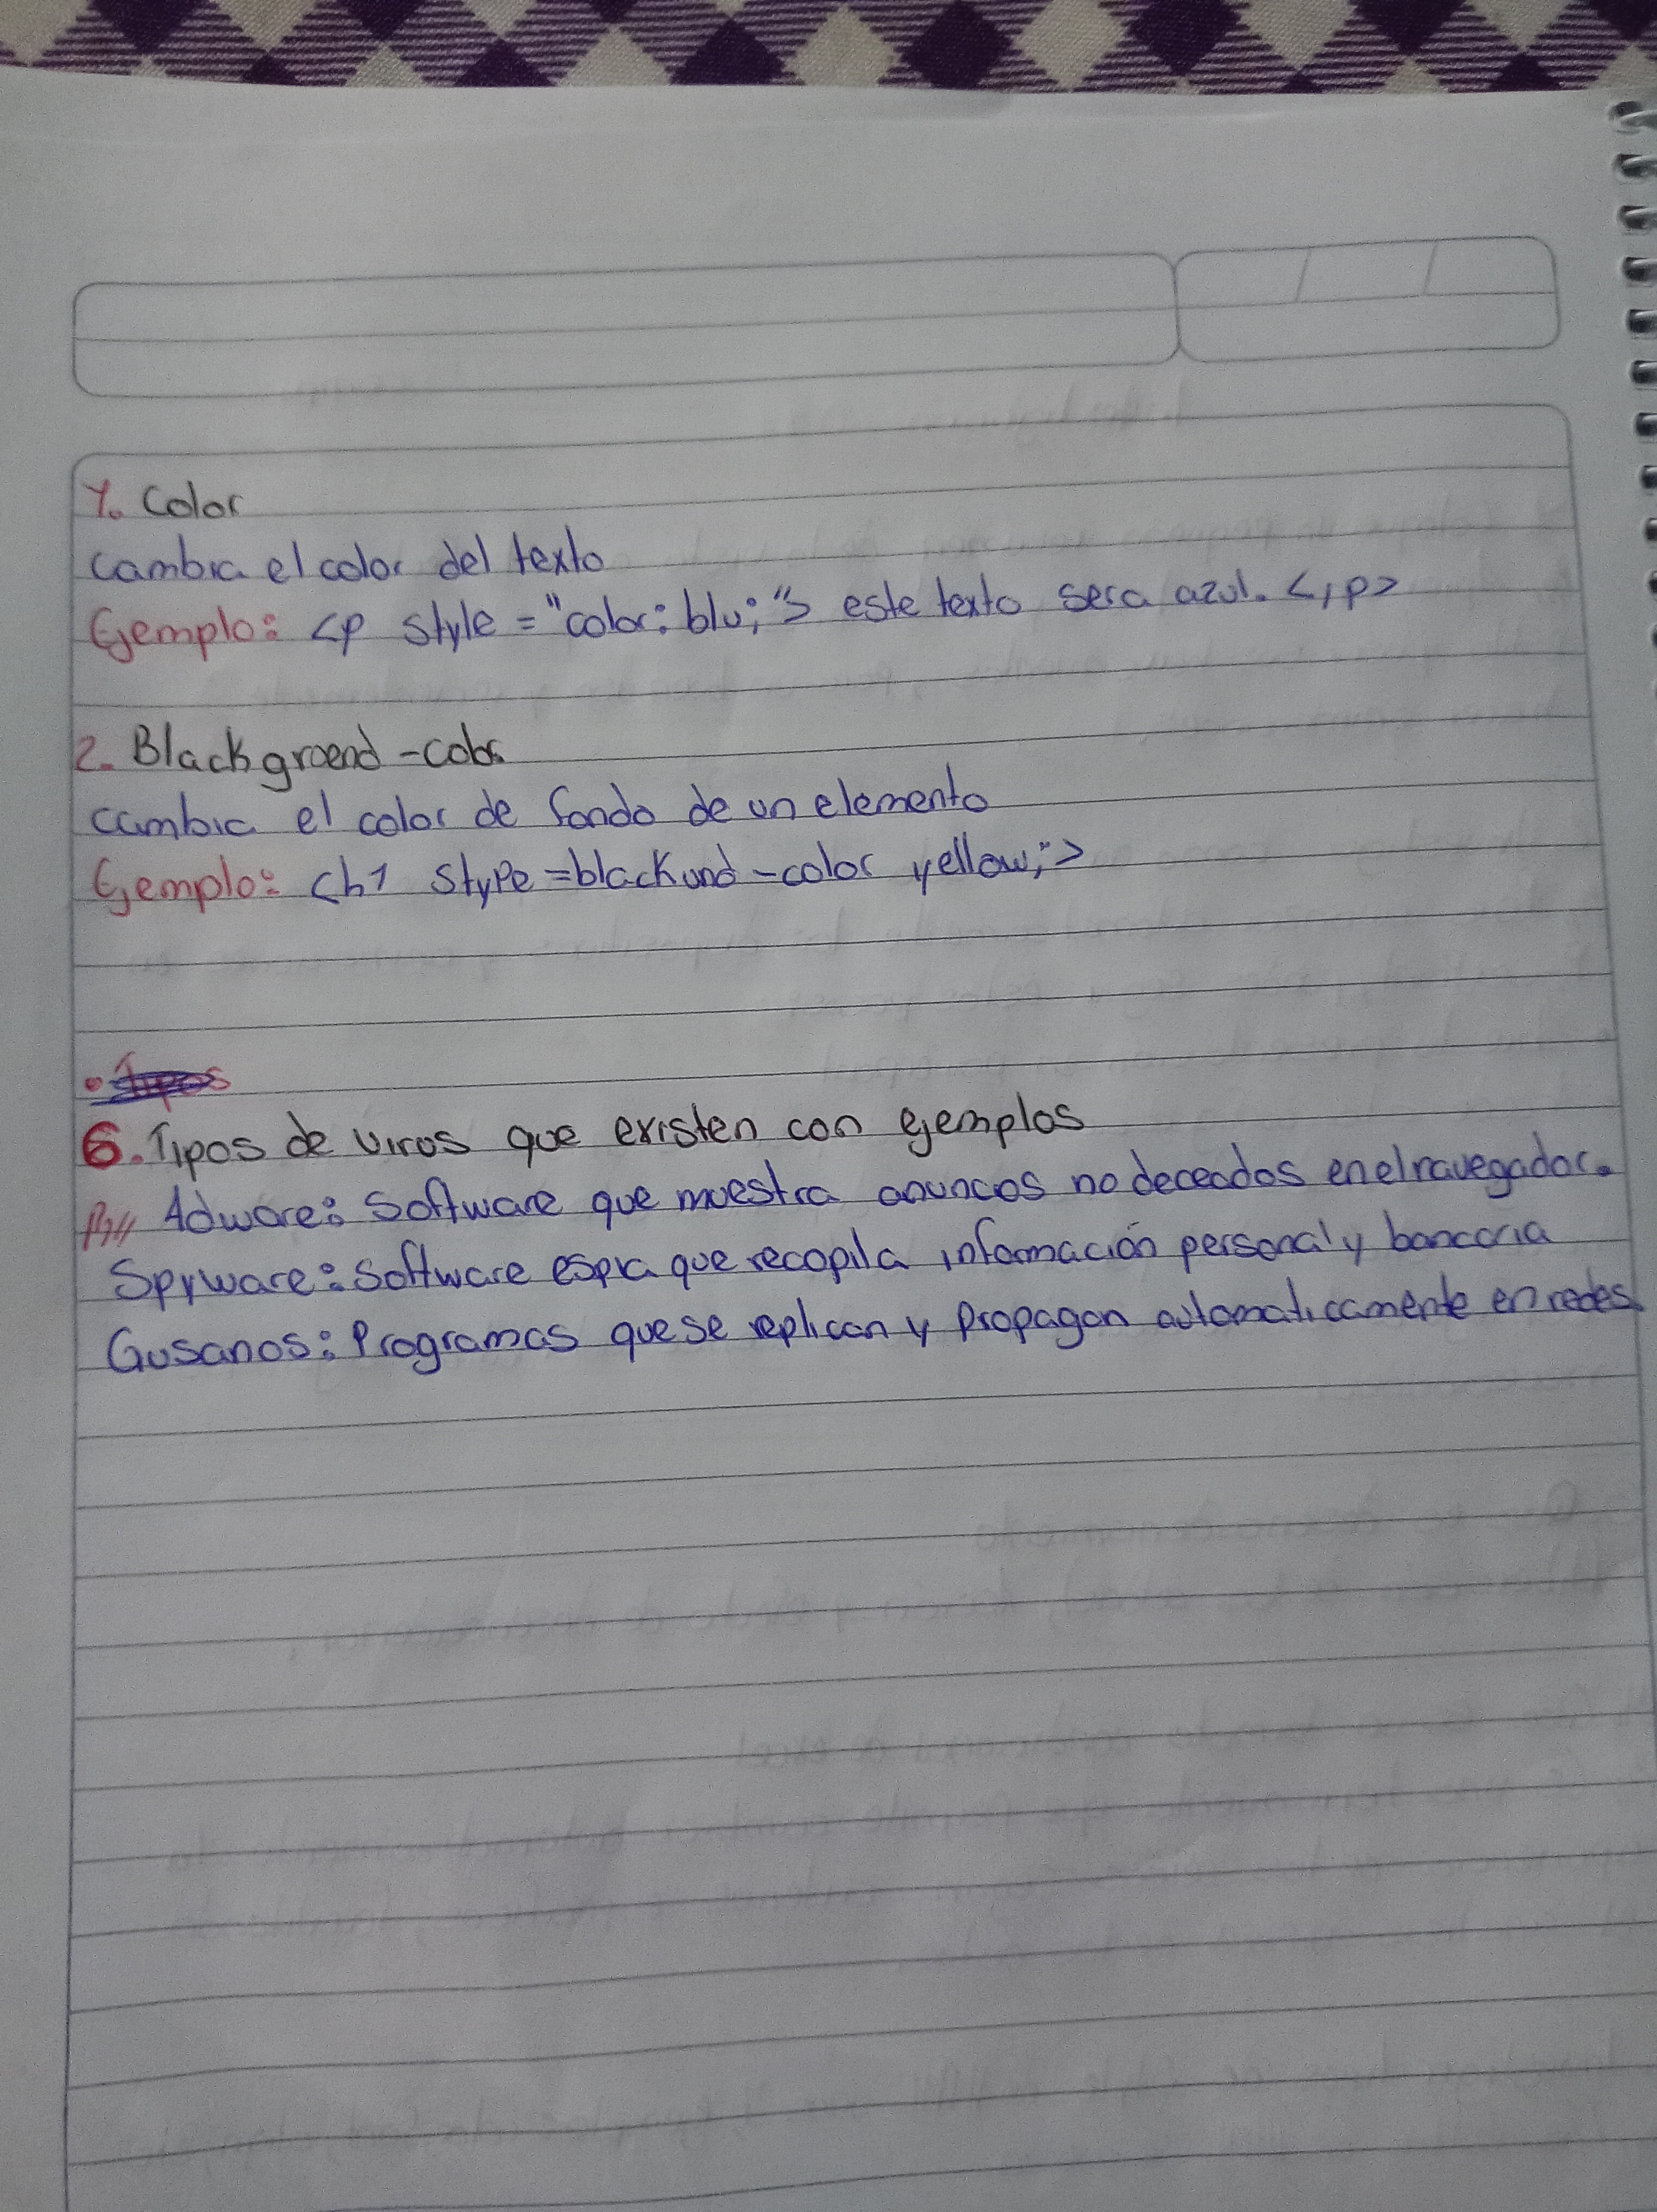 1. Color
cambia el color del texto
Ejemplo: <p style = "color: blu;"> este texto sera azul. <,p>
2. Blackgroend -color
cambia el color de fondo de un elemento
Ejemplo: <h1 stype =blackund -color yellow;">
• Tipos
6. Tipos de virus que existen con ejemplos
R// Adware: Software que muestra anuncos no deceados en el navegador.
Spyware: Software espia que recopila información personal y bancaria
Gusanos: Programas que se replican y propagan automaticamente en redes.